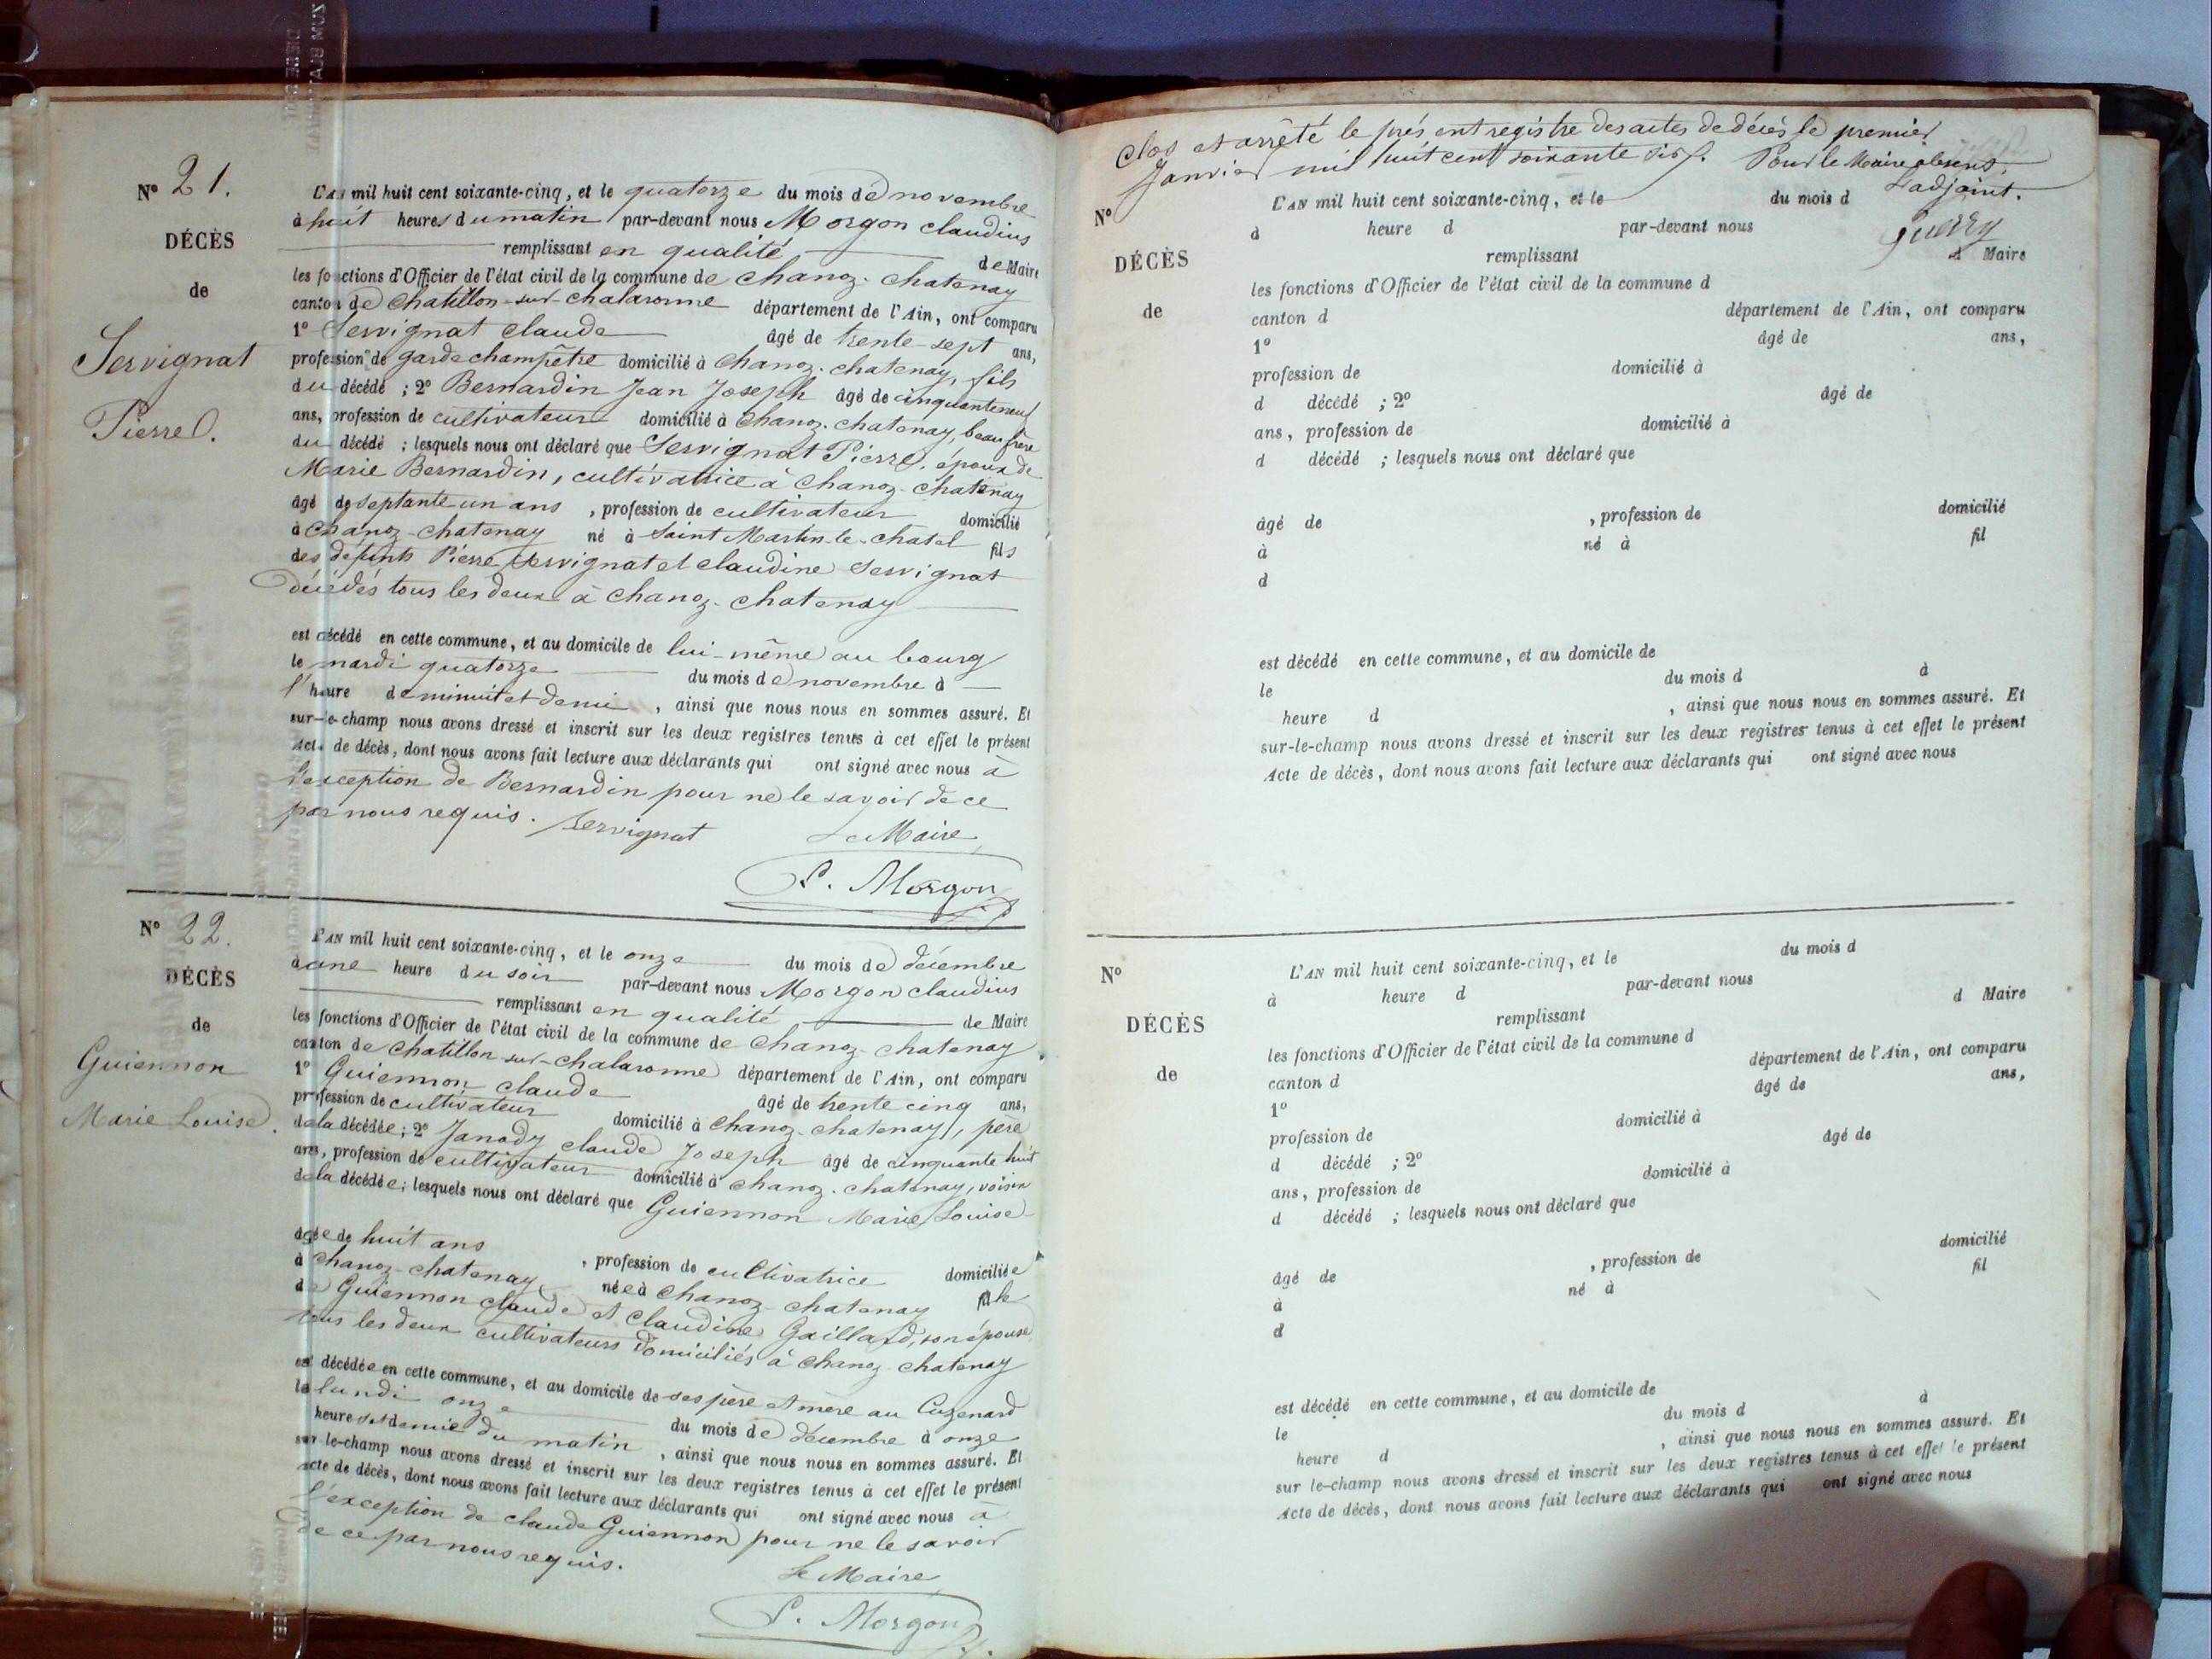 N° 21.
DÉCÈS
de
Servignat
Pierre.
L'AN mil huit cent soixante-cinq, et le quatorze du mois de novembre
à huit heures du matin par-devant nous Morgon claudius
remplissant en qualité de Maire
les fonctions d'Officier de l'état civil de la commune de chanoz-chatenay
canton de chatillon-sur-chalaronne département de l'Ain, ont comparu
1° Servignat claude âgé de trente-sept ans,
profession de garde champêtre domicilié à chanoz-chatenay, fils
du décédé ; 2° Bernardin Jean Joseph âgé de cinquante neuf
ans, profession de cultivateur domicilié à chanoz-chatenay, beau frère
du décédé ; lesquels nous ont déclaré que Servignat Pierre, époux de
Marie Bernardin, cultivatrice à chanoz-chatenay
âgé de septante un ans, profession de cultivateur domicilié
à chanoz-chatenay né à Saint Martin-le-chatel fils
des défunts Pierre Servignat et claudine Servignat
décédés tous les deux à chanoz-chatenay
est décédé en cette commune, et au domicile de lui-même au bourg
le mardi quatorze du mois de novembre à
l'heure de minuit et demi, ainsi que nous nous en sommes assuré. Et
sur-le-champ nous avons dressé et inscrit sur les deux registres tenus à cet effet le présent
Acte de décès, dont nous avons fait lecture aux déclarants qui ont signé avec nous à
l'exception de Bernardin pour ne le savoir de ce
par nous requis. Servignat Le Maire
C. Morgon
N° 22.
DÉCÈS
de
Guiennon
Marie Louise.
L'AN mil huit cent soixante-cinq, et le onze du mois de décembre
à une heure du soir par-devant nous Morgon claudius
remplissant en qualité de Maire
les fonctions d'Officier de l'état civil de la commune de chanoz-chatenay
canton de chatillon-sur-chalaronne département de l'Ain, ont comparu
1° Guiennon claude âgé de trente cinq ans,
profession de cultivateur domicilié à chanoz-chatenay, père
de la décédée ; 2° Janody claude Joseph âgé de cinquante huit
ans, profession de cultivateur domicilié à chanoz-chatenay, voisin
de la décédée ; lesquels nous ont déclaré que Guiennon Marie Louise
âgée de huit ans, profession de cultivatrice domiciliée
à chanoz-chatenay née à chanoz-chatenay fille
de Guiennon claude et claudine Gaillard, son épouse
tous les deux cultivateurs domiciliés à chanoz chatenay
est décédée en cette commune, et au domicile de ses père et mère au Cuzenard
le lundi onze du mois de décembre à onze
heures et demie du matin, ainsi que nous nous en sommes assuré. Et
sur le-champ nous avons dressé et inscrit sur les deux registres tenus à cet effet le présent
Acte de décès, dont nous avons fait lecture aux déclarants qui ont signé avec nous à
l'exception de claude Guiennon pour ne le savoir
de ce par nous requis.
Le Maire
C. Morgon
Clos et arrêté le présent registre des actes de décès le premier
Janvier mil huit cent soixante six. Pour le Maire absent,
L'adjoint.
N°
DÉCÈS
de
L'AN mil huit cent soixante-cinq, et le du mois d
à heure d par-devant nous
remplissant d Maire
les fonctions d'Officier de l'état civil de la commune d
canton d département de l'Ain, ont comparu
1° âgé de ans,
profession de domicilié à
d décédé ; 2° âgé de
ans, profession de domicilié à
d décédé ; lesquels nous ont déclaré que
âgé de , profession de domicilié
à né à fil
d
est décédé en cette commune, et au domicile de
le du mois d à
heure d , ainsi que nous nous en sommes assuré. Et
sur-le-champ nous avons dressé et inscrit sur les deux registres tenus à cet effet le présent
Acte de décès, dont nous avons fait lecture aux déclarants qui ont signé avec nous
N°
DÉCÈS
de
L'AN mil huit cent soixante-cinq, et le du mois d
à heure d par-devant nous
remplissant d Maire
les fonctions d'Officier de l'état civil de la commune d
canton d département de l'Ain, ont comparu
1° âgé de ans,
profession de domicilié à
d décédé ; 2° âgé de
ans, profession de domicilié à
d décédé ; lesquels nous ont déclaré que
âgé de , profession de domicilié
à né à fil
d
est décédé en cette commune, et au domicile de
le du mois d à
heure d , ainsi que nous nous en sommes assuré. Et
sur le-champ nous avons dressé et inscrit sur les deux registres tenus à cet effet le présent
Acte de décès, dont nous avons fait lecture aux déclarants qui ont signé avec nous